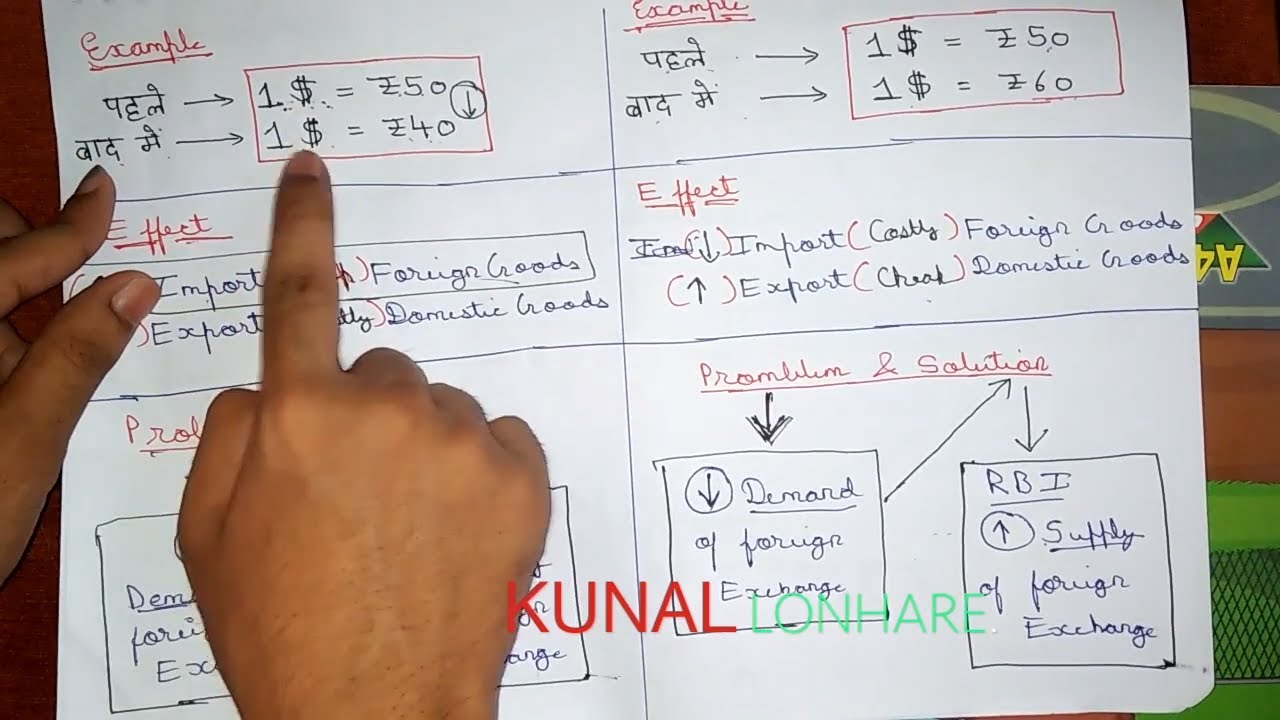 Example
पहले → 1 $ = ₹50
बाद में → 1 $ = ₹40 ↓
Effect
Import Foreign Goods
) Export Domestic Goods
Example
पहले → 1 $ = ₹50
बाद में → 1 $ = ₹60
Effect
(↓) Import (Costly) Foreign Goods
(↑) Export (Cheap) Domestic Goods
Promblem & Solution
↓ Demand
of foreign
Exchange
RBI
↑ Supply
of foreign
Exchange
KUNAL LONHARE
A4